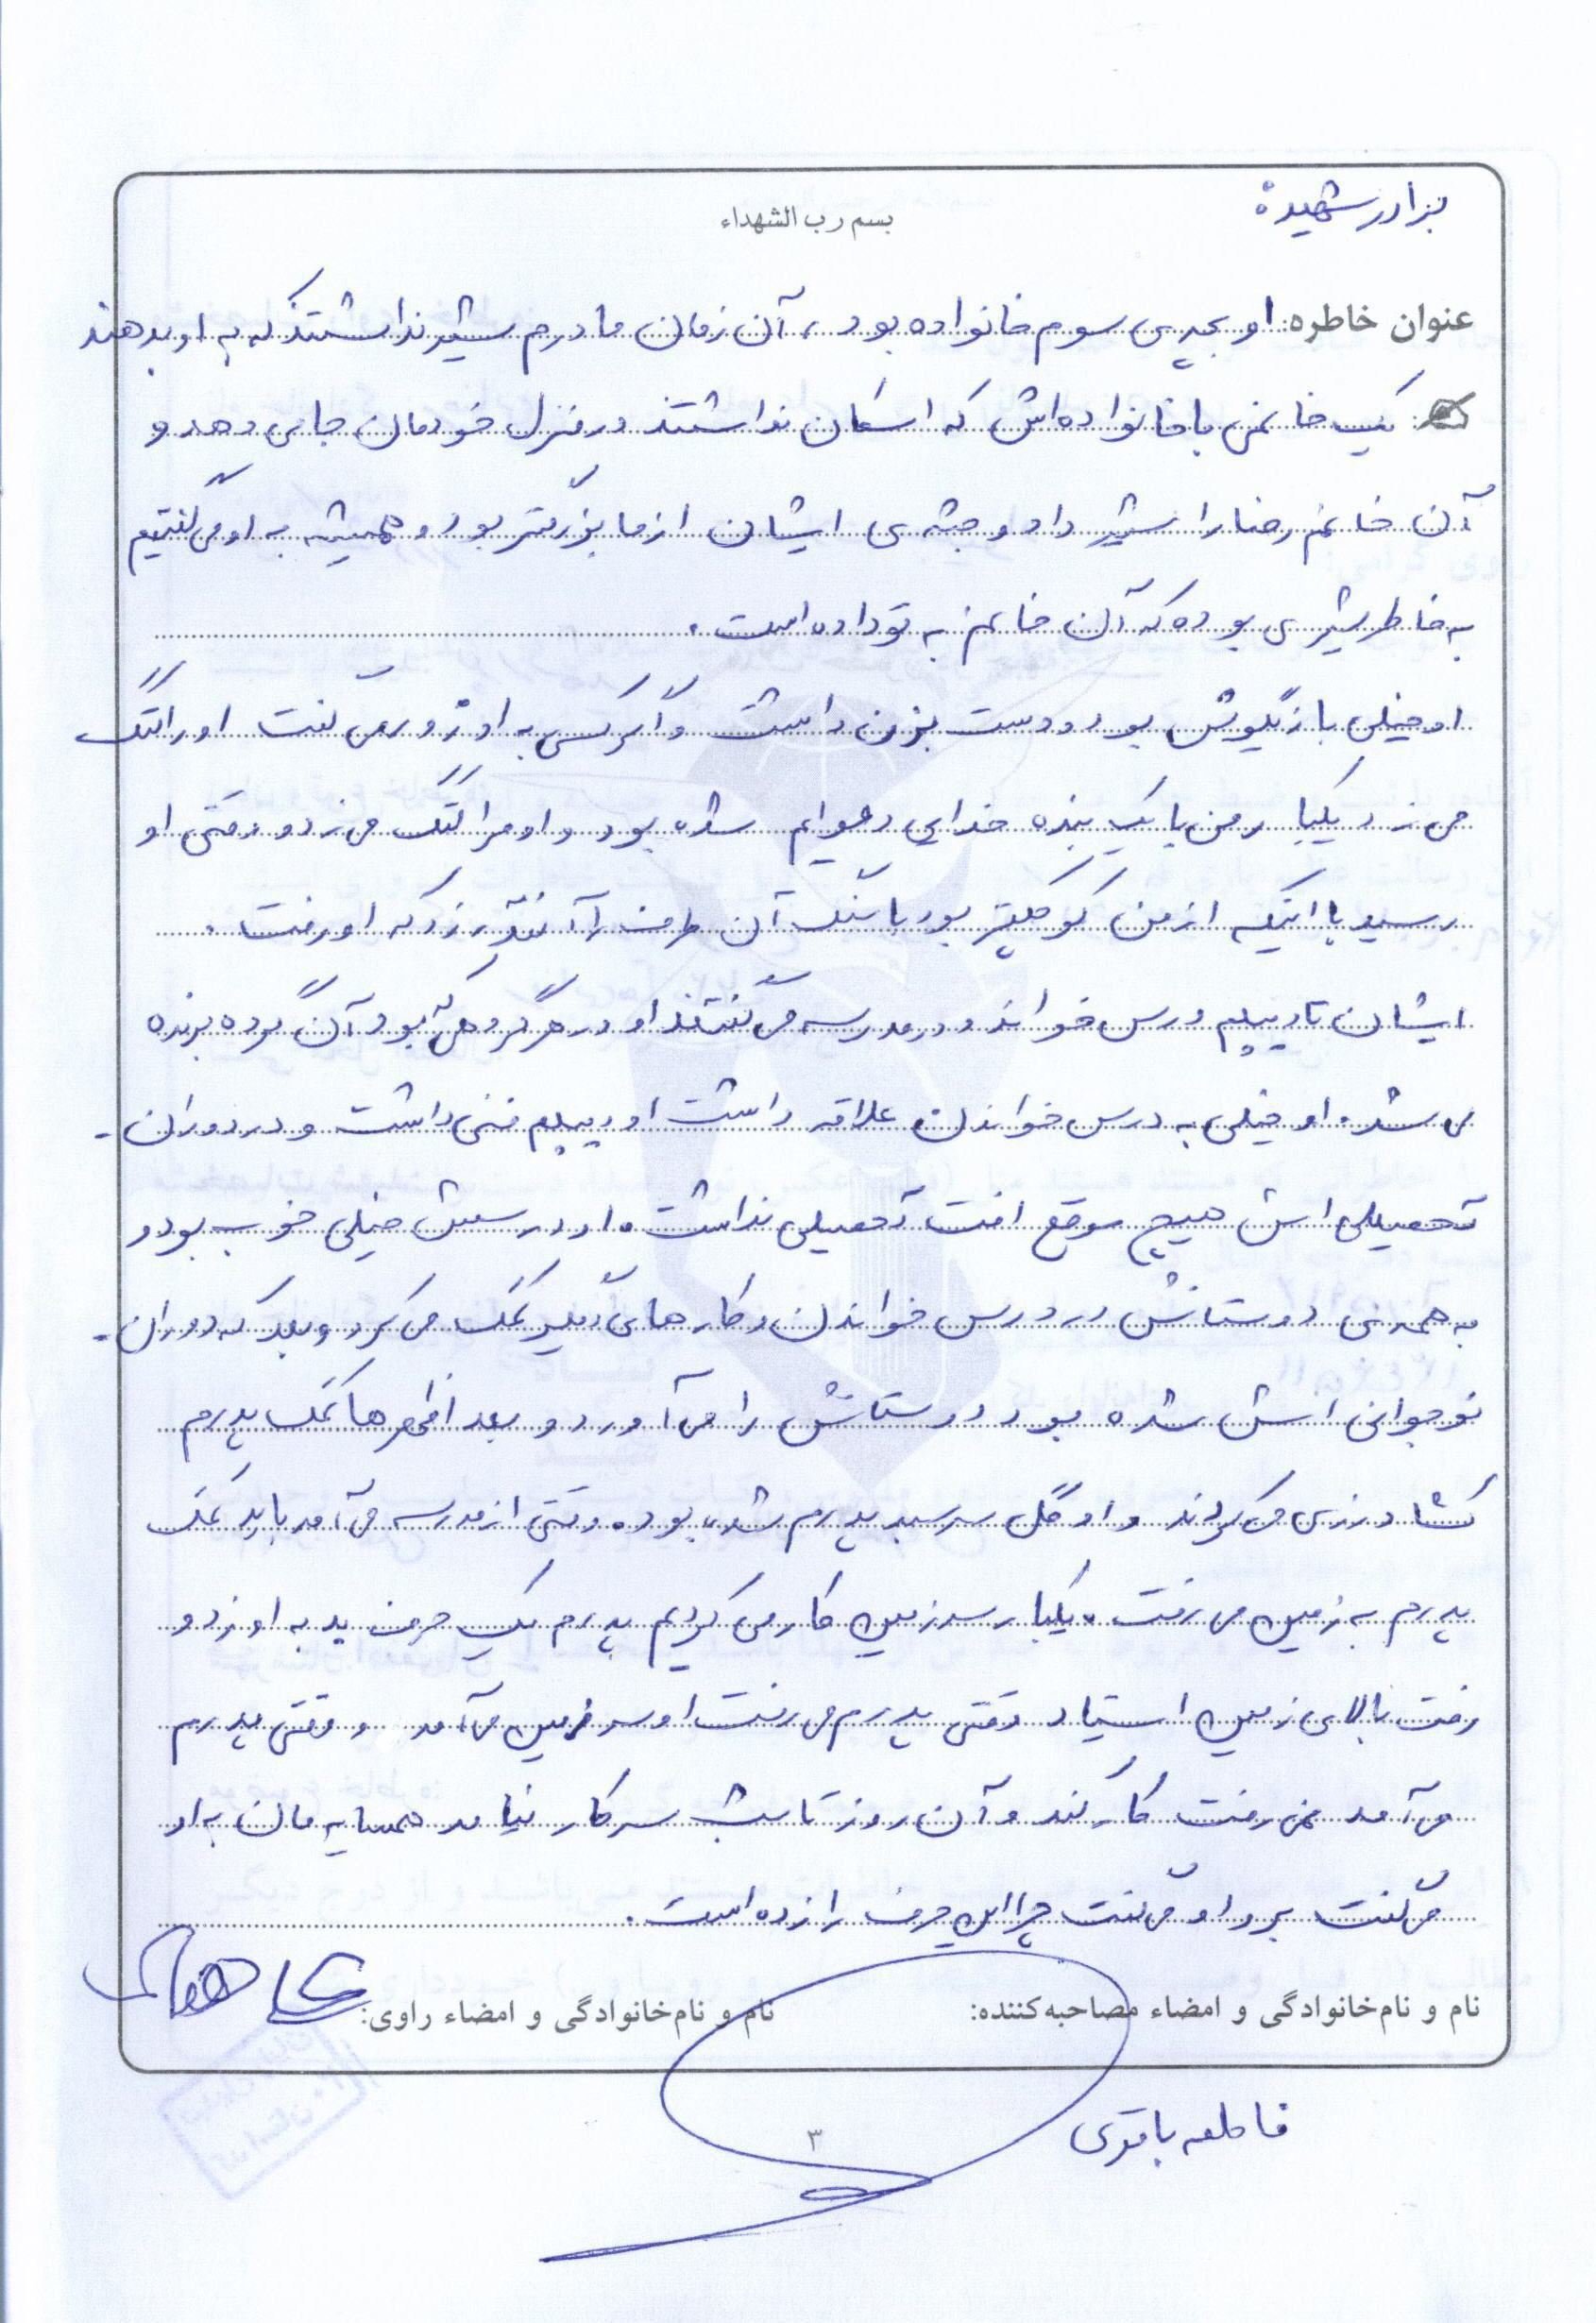 برادر شهید:
بسم رب الشهداء
عنوان خاطره: او بچه‌ی سوم خانواده بود، آن زمان مادرم شیر نداشتند که به او بدهند
یک خانمی با خانواده‌اش که اسکان نداشتند در منزل خودمان جای دهد و
آن خانم رضا را شیر داد و جثه‌ی ایشان از ما بزرگتر بود و همیشه به او می‌گفتیم
به خاطر شیری بوده که آن خانم به تو داده است.
او خیلی بازیگوش بود و دست بزن داشت و اگر کسی به او زور می‌گفت او را کتک
می‌زد یکبار من با یک بنده خدایی دعوایم شده بود و او مرا کتک می‌زد و وقتی او
رسید با اینکه از من کوچکتر بود با سنگ آن طرف را آنقدر زد که او رفت.
ایشان تا دیپلم درس خواند و در مدرسه می‌گفتند او در هر گروهی که بود آن گروه برنده
می‌شد. او خیلی به درس خواندن علاقه داشت او دیپلم فنی داشت و در دوران
تحصیلی اش هیچ موقع افت تحصیلی نداشت. او درسش خیلی خوب بود و
به همه‌ی دوستانش در درس خواندن و کارهای دیگر کمک می‌کرد و بعد که دوران
نوجوانی اش شده بود دوستانش را می‌آورد و بعد از ظهرها کمک پدرم
کشاورزی می‌کردند و او گل سرسبد پدرم شده بود. وقتی از مدرسه می‌آمد باید کمک
پدرم به زمین می‌رفت. یکبار سر زمین کار می‌کردیم پدرم یک حرف بد به او زد و
رفت بالای زمین ایستاد وقتی پدرم می‌رفت او سر زمین می‌آمد و وقتی پدرم
می‌آمد نمی‌رفت کار کند و آن روز تا شب سر کار نیامد همسایه مان به او
می‌گفت برو او می‌گفت چرا این حرف را زده است.
نام و نام‌خانوادگی و امضاء مصاحبه‌کننده: نام و نام‌خانوادگی و امضاء راوی:
فاطمه باقری
۳